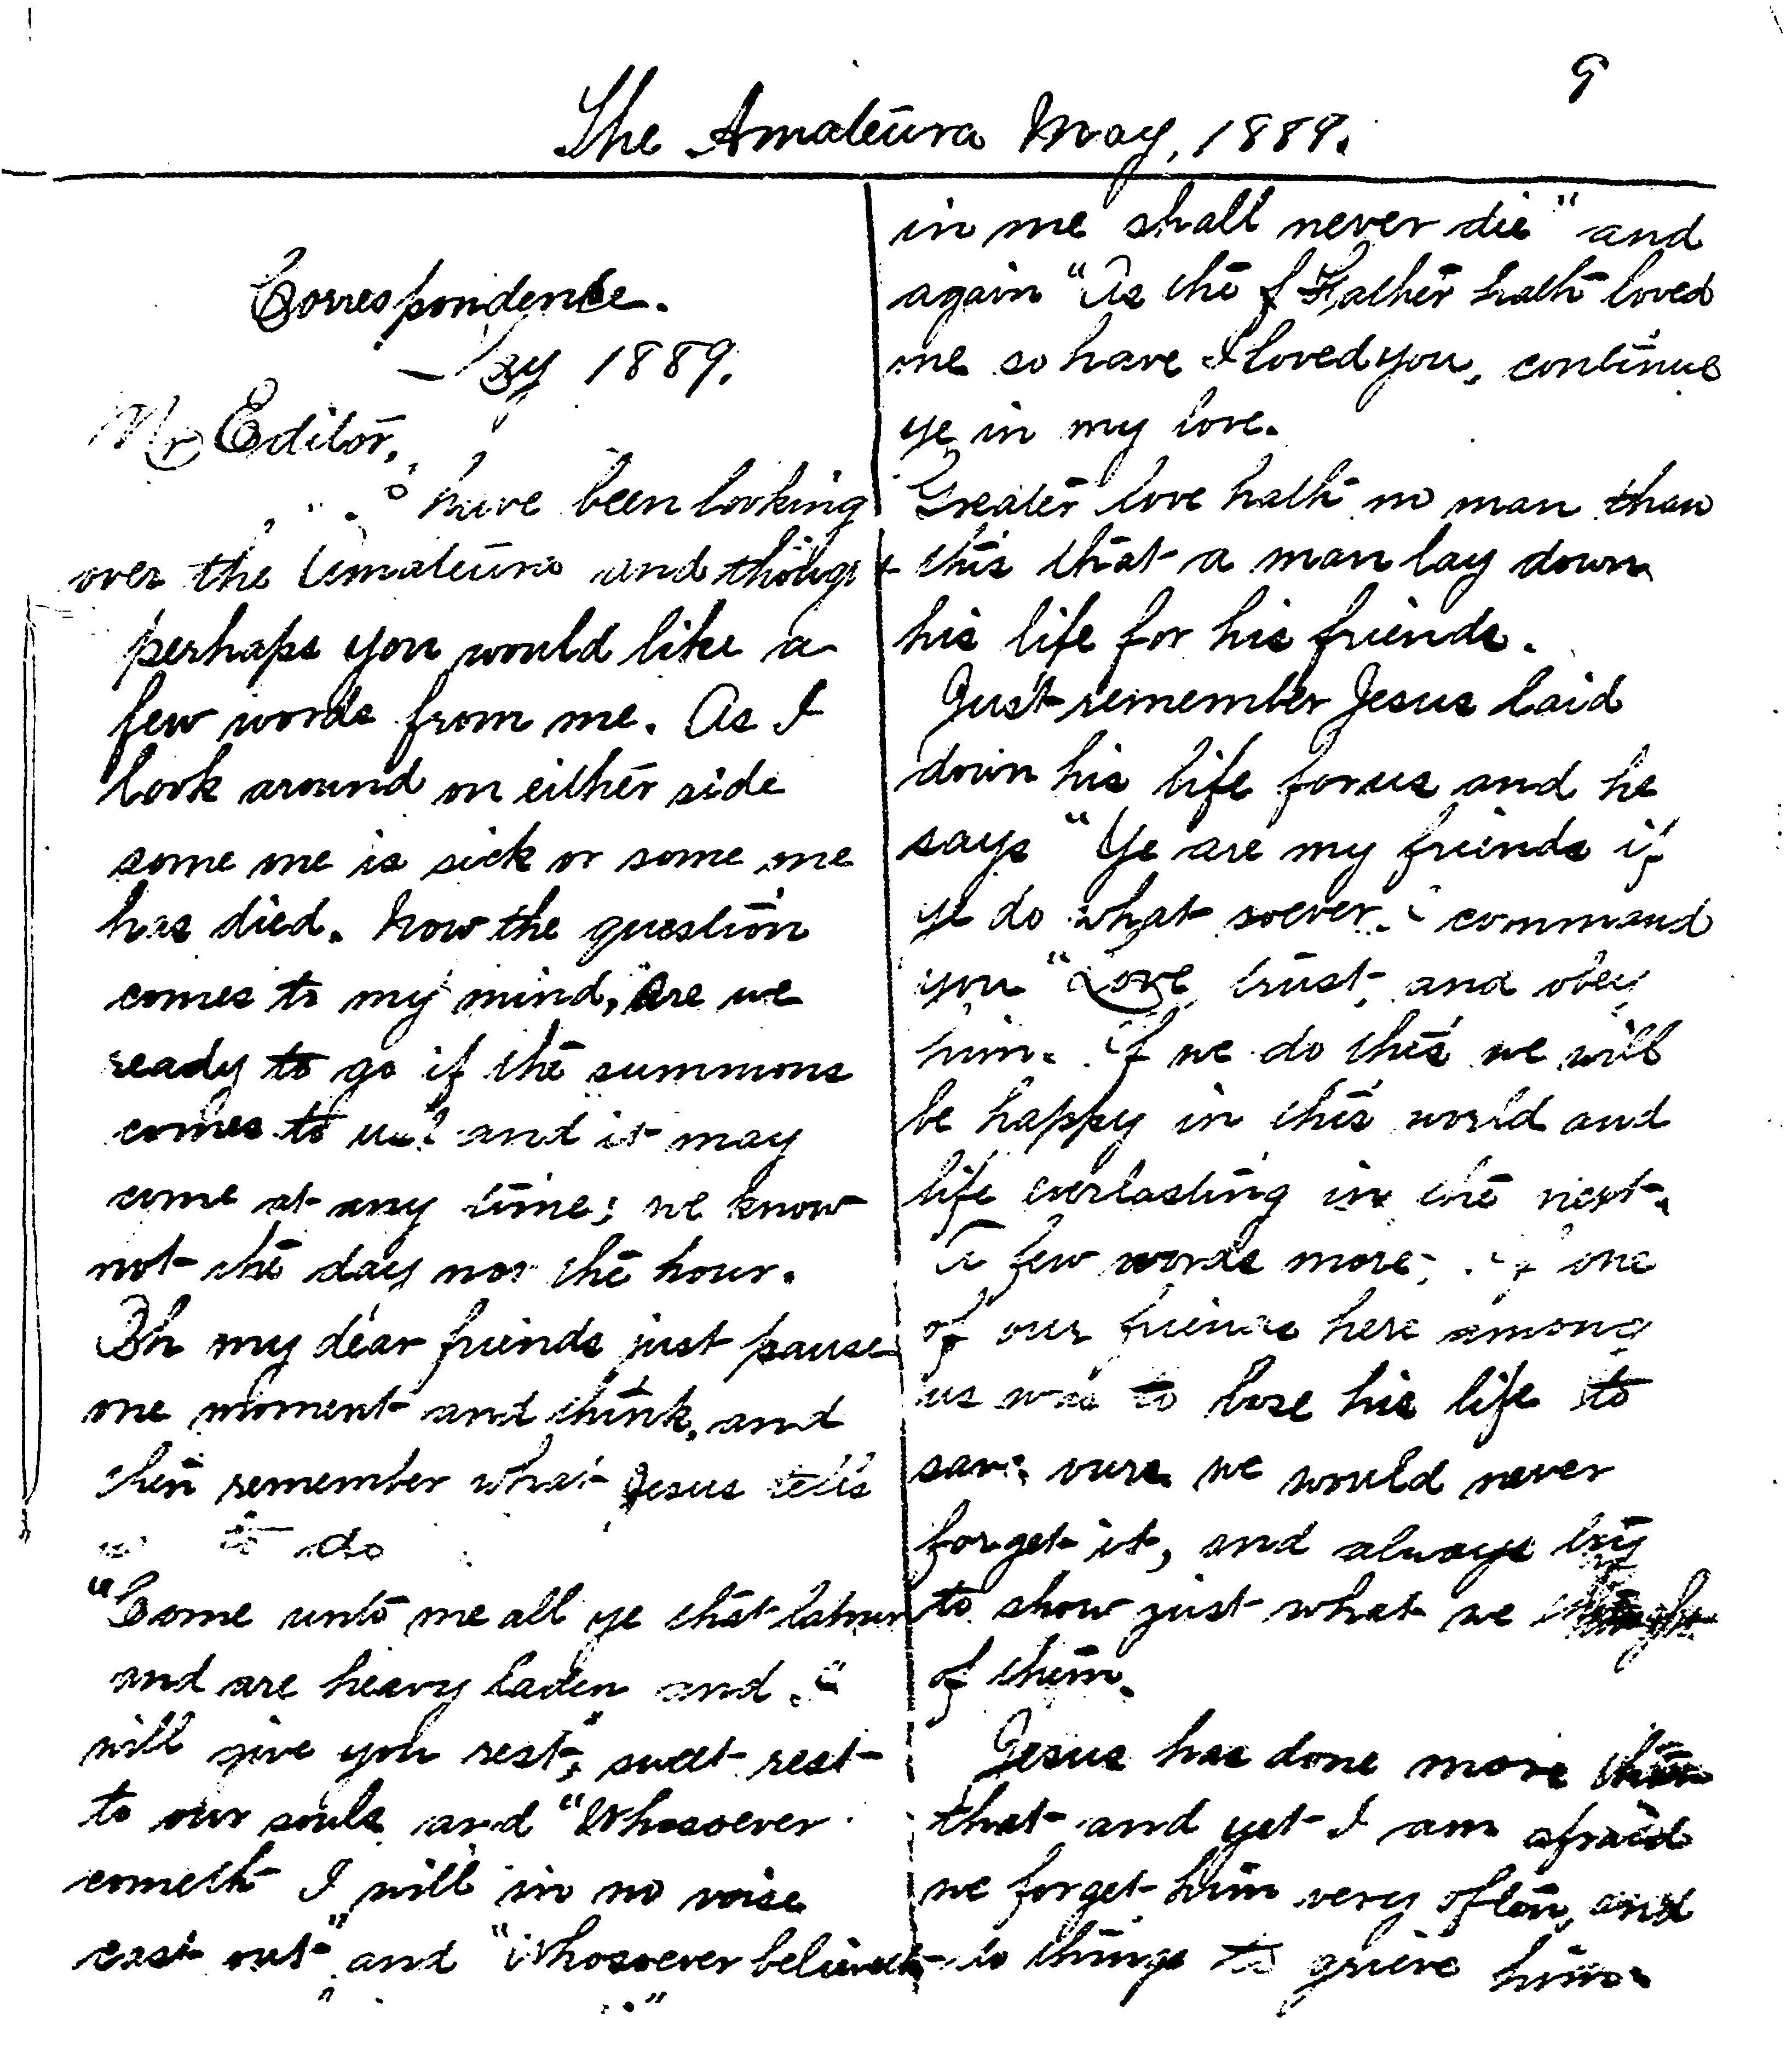 9
The Amateurs May, 1889.
Correspondence.
May 1889.
Mr Editor,
I have been looking
over the Amateurs and thought
perhaps you would like a
few words from me. As I
look around on either side
some one is sick or some one
has died. Now the question
comes to my mind, "Are we
ready to go if the summons
comes to us? and it may
come at any time; we know
not the day nor the hour.
Oh my dear friends just pause
one moment and think, and
then remember what Jesus tells
us to do
"Come unto me all ye that labour
and are heavy laden and I
will give you rest", sweet rest
to our souls and "Whosoever
cometh I will in no wise
cast out" and "Whosoever believeth
in me shall never die" and
again "As the Father hath loved
me so have I loved you, continue
ye in my love.
Greater love hath no man than
this that a man lay down
his life for his friends.
Just remember Jesus laid
down his life for us and he
says "Ye are my friends if
ye do what soever I command
you" Love, trust, and obey
him. If we do this we will
be happy in this world and
life everlasting in the next.
A few words more; if one
of our friends here among
us was to lose his life to
save ours we would never
forget it, and always try
to show just what we thought
of them.
Jesus has done more than
that and yet I am afraid
we forget him very often, and
do things to grieve him.